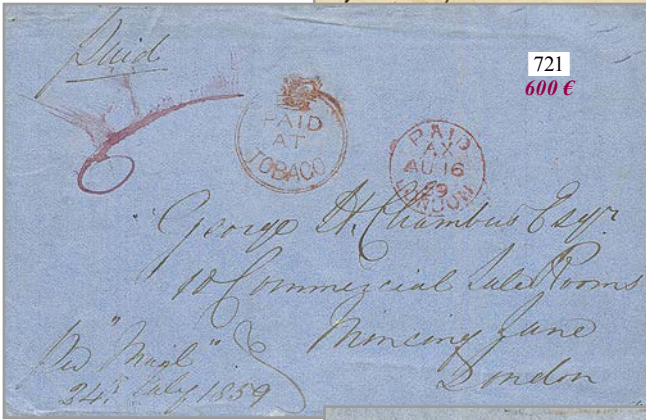 Paid
721
600 €
PAID
AT
TOBAGO
PAID
AX
AU 16
59
LONDON
George H. Chambers Esqr.
10 Commercial Sale Rooms
Mincing Lane
London
Per "Mail"
24th July 1859